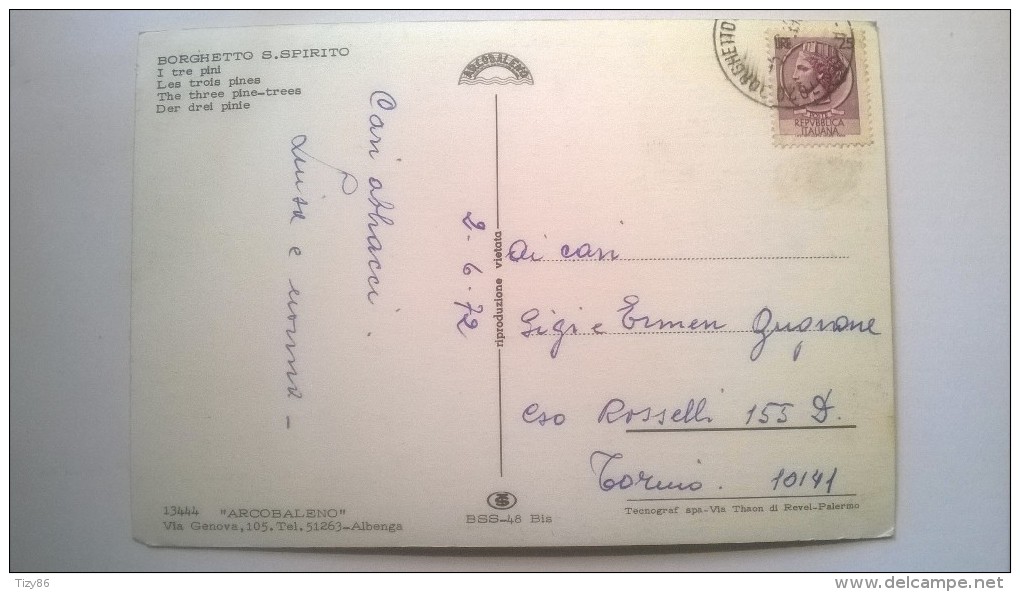 BORGHETTO S.SPIRITO
I tre pini
Les trois pines
The three pine-trees
Der drei pinie
ARCOBALENO
BORGHETTO
25
REPVBBLICA
ITALIANA
Cari abbracci.
Luisa e nonna -
2.6.72
riproduzione vietata
Ai cari
Gigi e Ermen
Cso Rosselli 155 D.
Torino. 10141
13444 "ARCOBALENO"
Via Genova,105.Tel.51263-Albenga
BSS-48 Bis
Tecnograf spa-Via Thaon di Revel-Palermo
Tizy86
www.delcampe.net